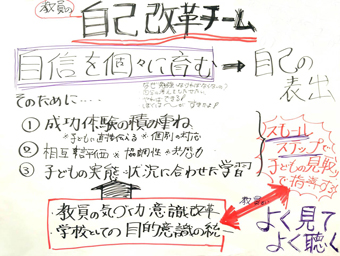 教員の
自己改革チーム
自信を個々に育む → 自己の
表出
そのために・・・・
① 成功体験の積み重ね
② 相互
③ 子どもの実態・状況に合わせた学習
スモール
ステップで
子どもの見取り
で指導する
・教員の気づく力意識改革
・学校としての目的意識の統一
教員
よく見て
よく聴く